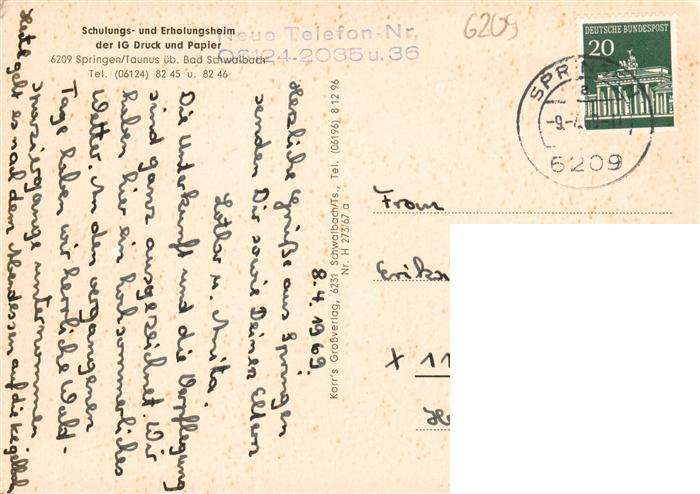 Schulungs- und Erholungsheim
der IG Druck und Papier
6209 Springen/Taunus üb. Bad Schwalbach
Tel. (06124) 82 45 u. 82 46
Neue Telefon-Nr.
06124-2035 u. 36
6209
DEUTSCHE BUNDESPOST
20
SPRI
-9.-4.
6209
8.4.1969.
Herzliche Grüße aus Springen
senden Dir sowie Deinen Eltern
Lothar u. Anita.
Die Unterkunft und die Verpflegung
sind ganz ausgezeichnet. Wir
haben hier ein hochsommerliches
Wetter. In den vergangenen
Tage haben wir herrliche Wald-
spaziergänge unternommen
Heute geht es nach dem Abendessen auf die Kegelbahn
Karr's Großverlag, 6231 Schwalbach/Ts., Tel. (06196) 8 12 96
Nr. H 273/67 a
Erika
X 11